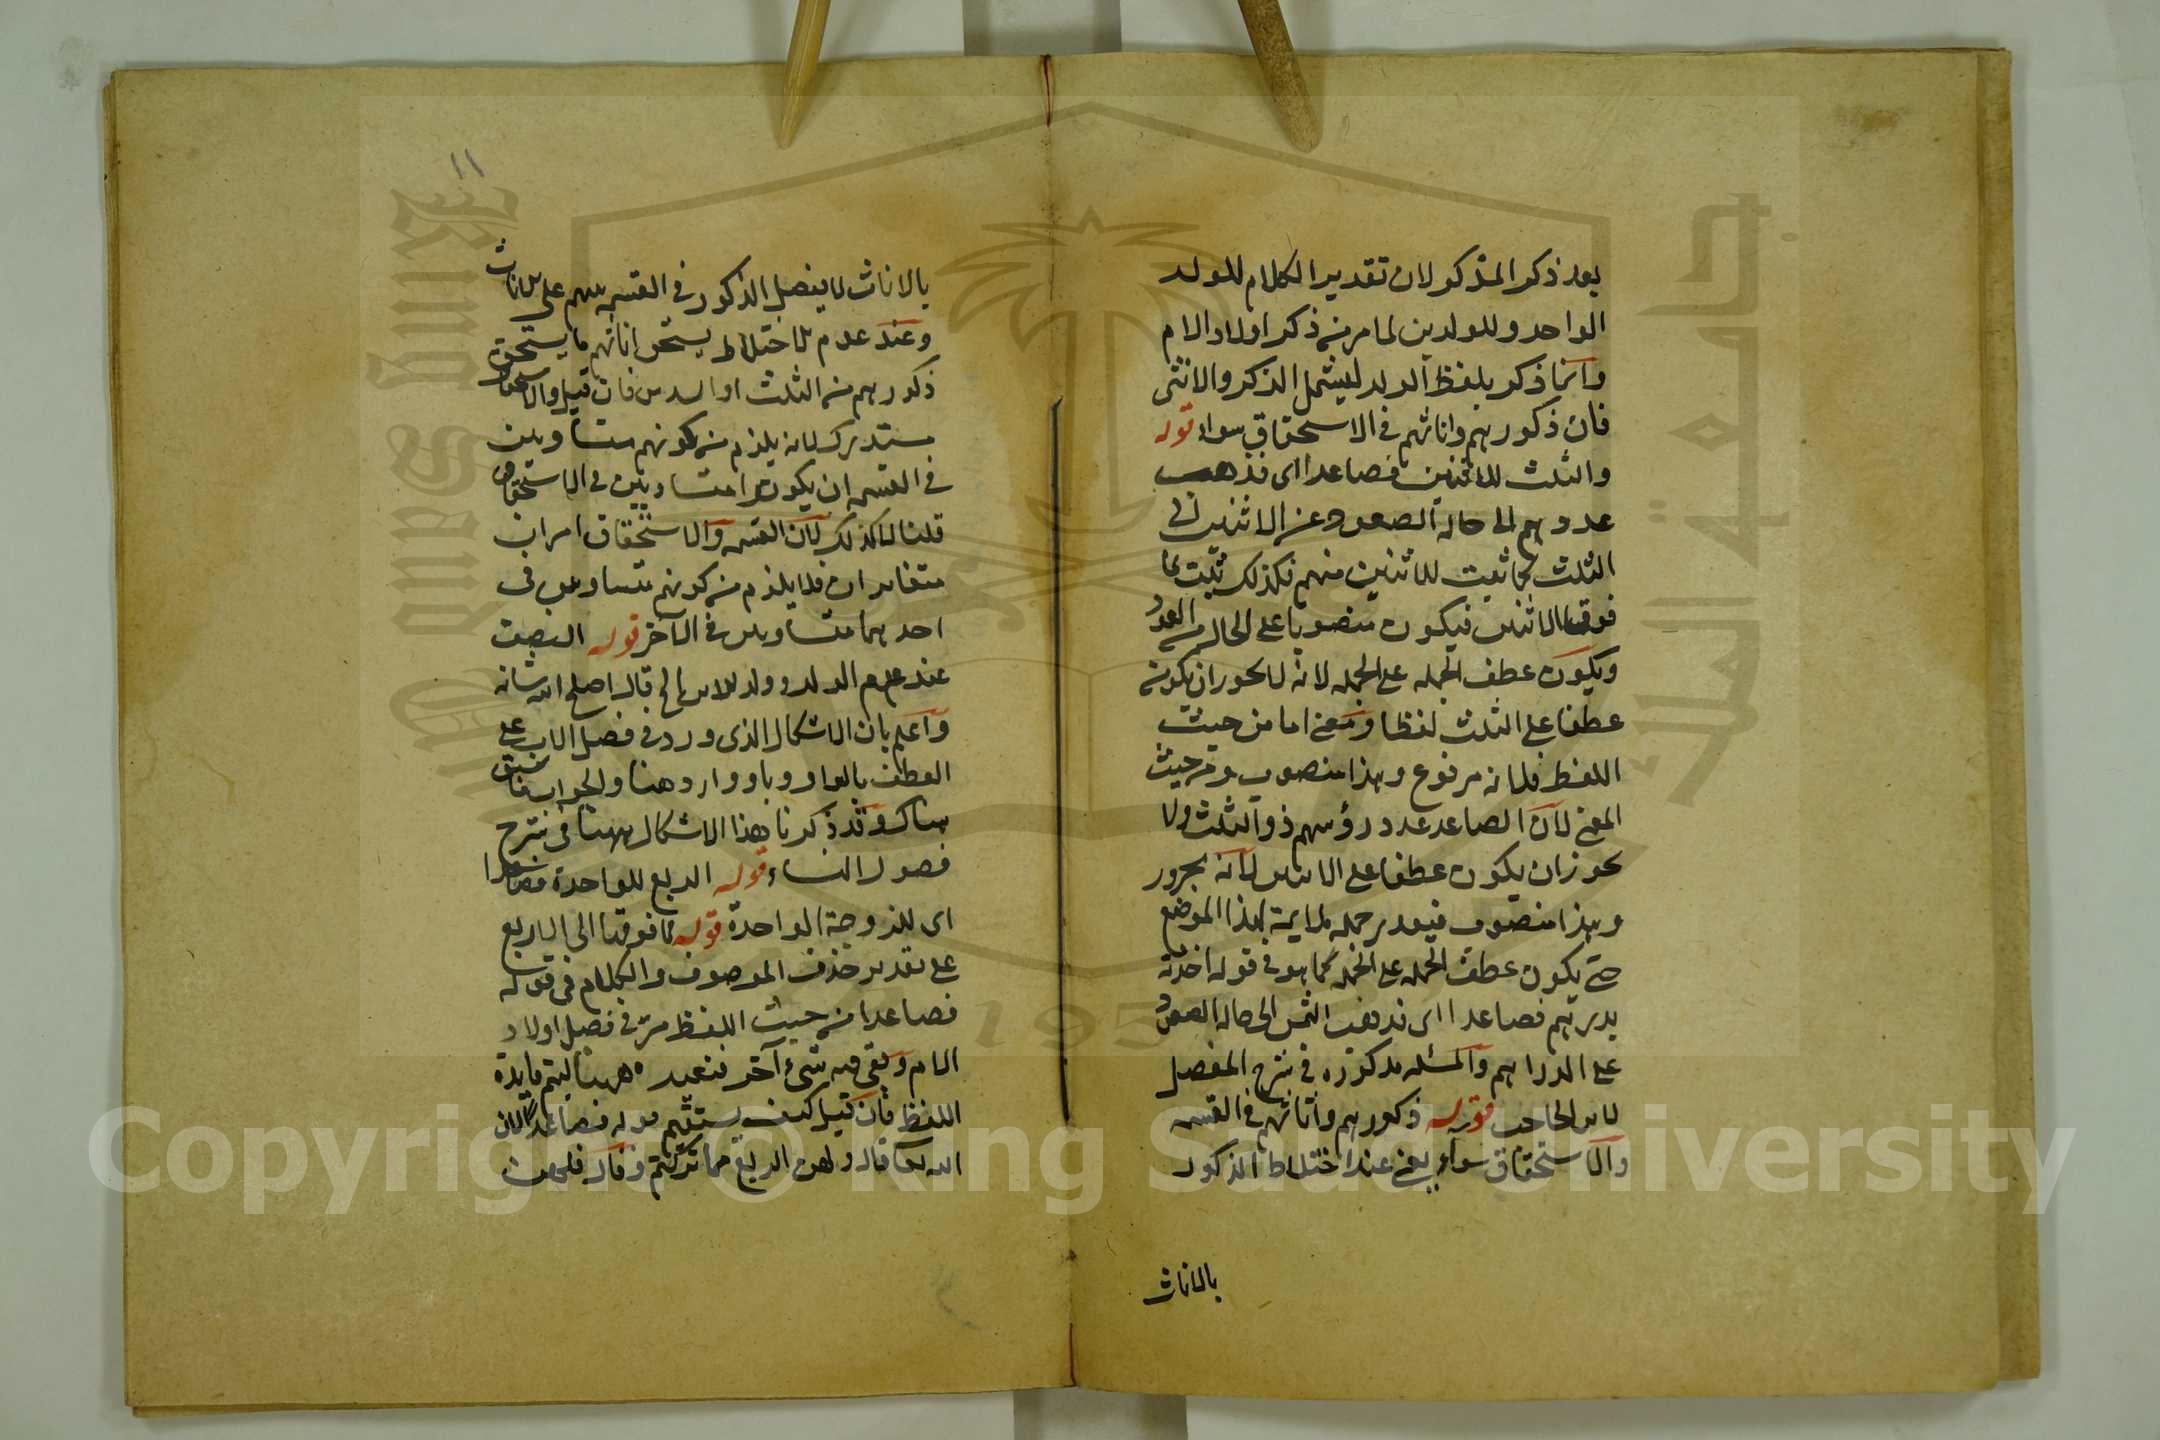 بعد ذكر المذكور لان تقدير الكلام للولد
الواحد وللولدين لما مر من ذكر اولاد الام
وانما ذكر بلفظ الولد ليشمل الذكر والانثى
فان ذكورهم واناثهم في الاستحقاق سواء قوله
والثلث للاثنين فصاعدا اى فذهب
عددهم الى حالة الصعود عن الاثنين لى
الثلث كما ثبت للاثنين منهم فكذلك ثبت لما
فوق الاثنين فيكون منصوبا على الحال من العدد
ويكون عطف الجمله على الجمله لانه لا يجوز ان يكون
عطفا على الثلث لفظا ومعنى اما من حيث
اللفظ فلانه مرفوع وهذا منصوب ومن حيث
المعنى لان الصاعد عدد رؤسهم ذو الثلث ولا
يجوز ان يكون عطفا على الاثنين لانه مجرور
وهذا منصوب فيقدر جملة ملايمة لهذا الموضع
حتى يكون عطف الجمله على الجمله كما هو في قوله اخذته
بدرهم فصاعدا اى فذهب الثمن الى حالة الصعود
على الدراهم والمسئله مذكوره في شرح المفصل
لابن الحاجب قوله ذكورهم واناثهم في القسمه
والاستحقاق سواء يعنى عند اختلاط الذكور
بالاناث
١١
بالاناث لا يفضل الذكور في القسمه منهم على الاناث
وعند عدم الاختلاط يستحق اناثهم ما يستحق
ذكورهم من الثلث او السدس فان قيل والاستحقاق
مستدرك لانه يلزم من كونهم متساويين
في القسمه ان يكونوا متساويين في الاستحقاق
قلنا لا كذلك لان القسمه والاستحقاق امران
متغايران فلا يلزم من كونهم متساويين في
احدهما متساويين في الآخر قوله النصف
عند عدم الولد وولد الابن الخ قال اصلح الله شانه
واعلم بان الاشكال الذى ورد في فصل الاب على
العطف بالواو وباو وارد هنا والجواب ما سبق
هناك وقد ذكرنا هذا الاشكال ههنا في شرح
فصول النساء قوله الربع للواحدة فصاعدا
اى للزوجة الواحدة قوله فما فوقها الى الاربع
على تقدير حذف الموصوف والكلام في قوله
فصاعدا من حيث اللفظ مر في فصل اولاد
الام وبقى فيه شىء آخر فنعيده ههنا ليتم فايدة
اللفظ فان قيل كيف يستقيم قوله فصاعدا لان
الله تعالى قال ولهن الربع مما تركتم وقال فلهن